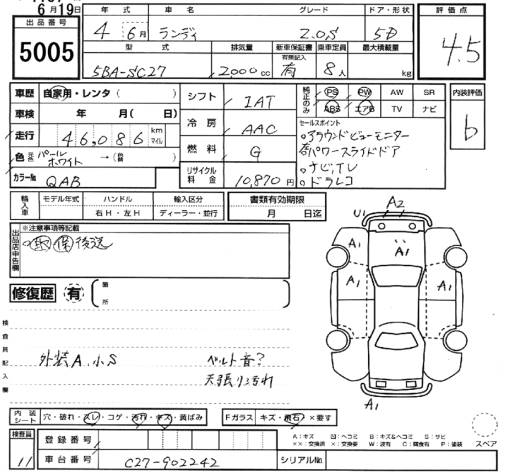 6月19日
出品番号
5005
年式 車名 グレード ドア・形状
4年6月 ランディ 2.0S 5D
型式 排気量 新車保証書 乗車定員 最大積載量
有無記入
5BA-SC27 2000cc 有 8人 kg
評価点
4.5
車歴 自家用・レンタ( )
車検 年 月(日)
走行 46,086 km マイル
色 元色 パールホワイト →(前 )
カラーNo. QAB
シフト IAT
冷房 AAC
燃料 G
リサイクル料金 10,870円
純正のみ PS PW AW SR
ABS エアB TV ナビ
セールスポイント
アラウンドビューモニター
パワースライドドア
ナビ,TV
ドラレコ
内装評価
b
輸入車 モデル年式 ハンドル 輸入区分 書類有効期限
右H・左H ディーラー・並行 月 日迄
出品店申告欄
※注意事項等記載
取 保 後送
修復歴 有
箇所
検査員記入欄
外装A.小S ベルト音?
天張り汚れ
U1 A2
A1 A1
A1 A1
A1
内装シート 穴・破れ・スレ・コゲ・汚れ・キズ・黄ばみ Fガラス キズ・飛石・×要す
A:キズ 凹:ヘコミ B:キズ&ヘコミ S:サビ
××:交換済 ×:交換要 W:波有 C:腐食有 P:塗装
スペア
検査員
11
登録番号
車台番号 C27-902242 シリアルNo.